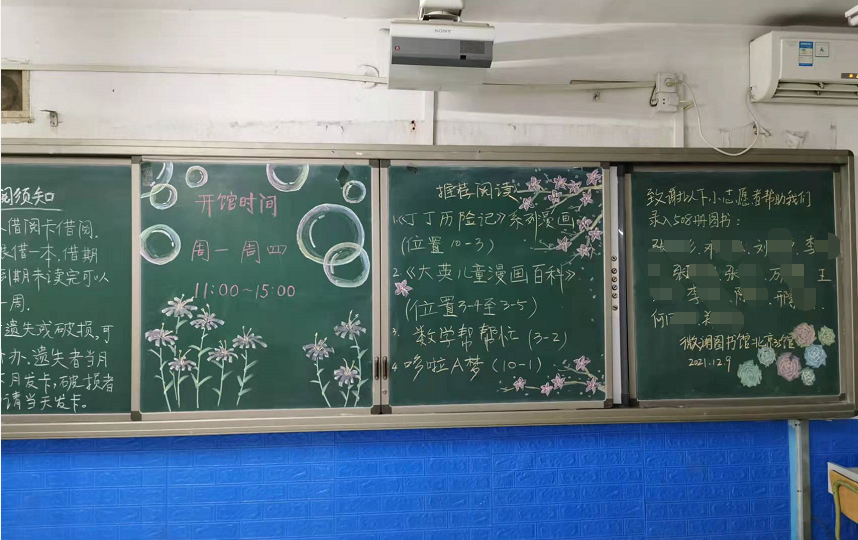 SONY
阅须知
借阅卡借阅。
借一本,借期
到期未读完可以
一周。
遗失或破损,可
办、遗失者当月
月发卡,破损者
请当天发卡。
开馆时间
周一 周四
11:00~15:00
推荐阅读
1.《丁丁历险记》系列漫画
(位置10-3)
2.《大英儿童漫画百科》
(位置3-4至3-5)
3. 数学帮帮忙 (3-2)
4 哆啦A梦 (10-1)
致谢以下小志愿者帮助我们
录入508册图书:
张 邓 刘 李
张 万 王
李
何
微澜图书馆北京馆
2021.12.9